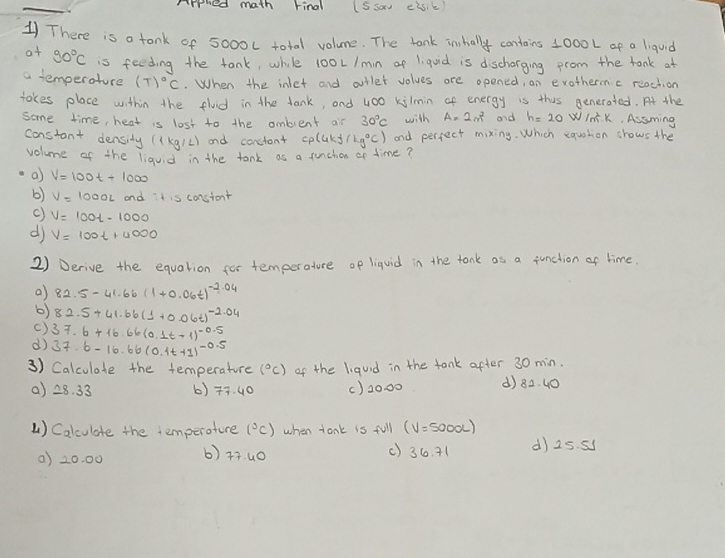 Applied math Final (5 soru eksik)
1) There is a tank of 5000L total volume. The tank initially contains 1000L of a liquid
at 90°C is feeding the tank, while 100L/min of liquid is discharging from the tank at
a temperature (T)°C. When the inlet and outlet valves are opened, an exothermic reaction
takes place within the fluid in the tank, and 400 kj/min of energy is thus generated. At the
same time, heat is lost to the ambient air 30°C with A=2m² and h=20 W/m².K. Assuming
Constant density (1kg/L) and constant cp(4kj/kg°C) and perfect mixing. Which equation shows the
volume of the liquid in the tank as a function of time?
• a) V=100t + 1000
b) V=1000L and it is constant
c) V= 100t - 1000
d) V= 100t + 4000
2) Derive the equation for temperature of liquid in the tank as a function of time.
a) 82.5 - 41.66 (1+0.06t)^-2.04
b) 82.5 + 41.66 (1 + 0.06t)^-2.04
c) 37.6 + 16.66 (0.1t + 1)^-0.5
d) 37.6 - 16.66 (0.1t+1)^-0.5
3) Calculate the temperature (°C) of the liquid in the tank after 30 min.
a) 28.33 b) 77.40 c) 20.00 d) 82.40
4) Calculate the temperature (°C) when tank is full (V=5000L)
a) 20.00 b) 77.40 c) 36.71 d) 25.51